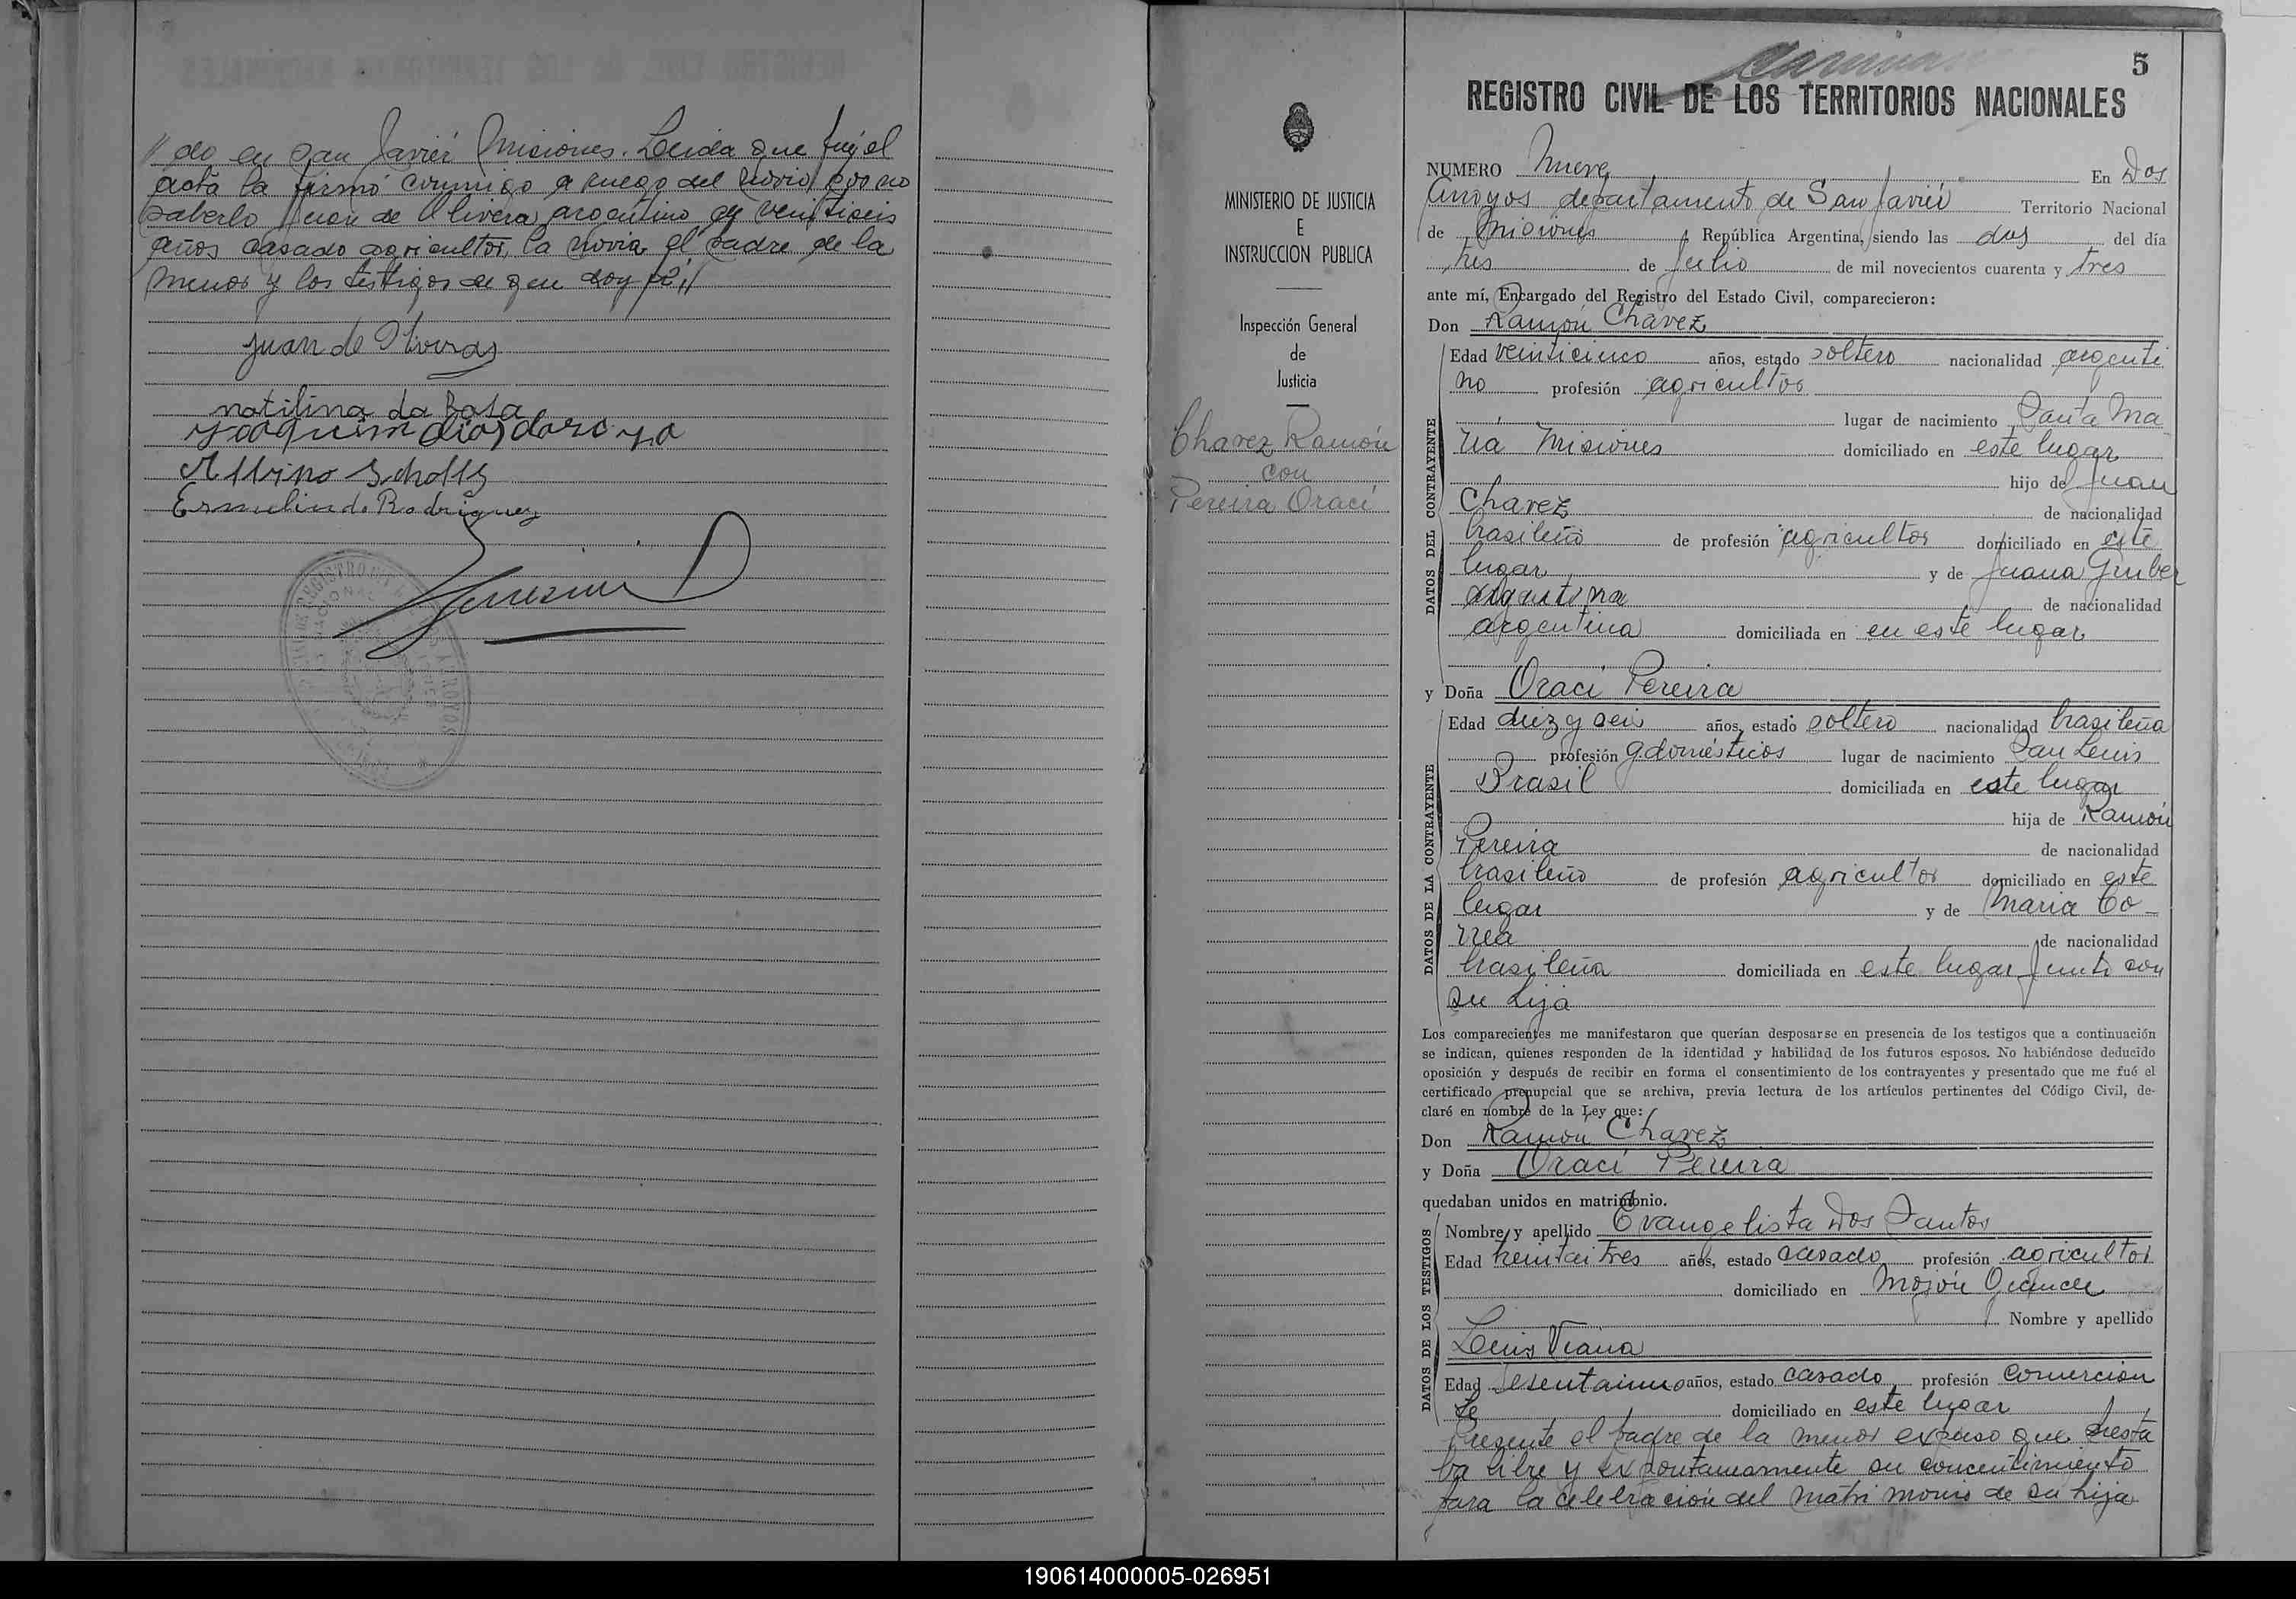 // do en San Javier Misiones. Leida que fué el
acta la firmó conmigo a ruego del novio por no
saberlo Juan de Olivera argentino de veintiseis
años casado agricultor, la novia el padre de la
menor y los testigos de que doy fé //
Juan de Oliveras
natilina da Rosa
Joaquim dias
Albino Scholls
Ermelindo Rodriguez
MINISTERIO DE JUSTICIA
E
INSTRUCCION PUBLICA
Inspección General
de
Justicia
Chavez Ramón
con
Pereira Oraci
5
REGISTRO CIVIL DE LOS TERRITORIOS NACIONALES
NUMERO Nueve En Dos
Arroyos departamento de San Javier Territorio Nacional
de Misiones, República Argentina, siendo las dos del día
tres de Julio de mil novecientos cuarenta y tres
ante mí, Encargado del Registro del Estado Civil, comparecieron:
Don Ramón Chavez
DATOS DEL CONTRAYENTE
Edad veinticinco años, estado soltero nacionalidad argenti
no profesión agricultor
lugar de nacimiento Santa Ma
ria Misiones domiciliado en este lugar
hijo de Juan
Chavez de nacionalidad
brasileño de profesión agricultor domiciliado en este
lugar y de Juana Gruber
argentina de nacionalidad
argentina domiciliada en en este lugar
y Doña Oraci Pereira
DATOS DE LA CONTRAYENTE
Edad diez y seis años, estado soltero nacionalidad brasileña
profesión q domésticos lugar de nacimiento San Luis
Brasil domiciliada en este lugar
hija de Ramón
Pereira de nacionalidad
brasileño de profesión agricultor domiciliado en este
lugar y de Maria Co-
rrea de nacionalidad
brasileña domiciliada en este lugar junto con
su hija
Los comparecientes me manifestaron que querían desposarse en presencia de los testigos que a continuación
se indican, quienes responden de la identidad y habilidad de los futuros esposos. No habiéndose deducido
oposición y después de recibir en forma el consentimiento de los contrayentes y presentado que me fué el
certificado prenupcial que se archiva, previa lectura de los artículos pertinentes del Código Civil, de-
claré en nombre de la Ley que:
Don Ramón Chavez
y Doña Oraci Pereira
quedaban unidos en matrimonio.
DATOS DE LOS TESTIGOS
Nombre y apellido Evangelista Dos Santos
Edad treintaitres años, estado casado profesión agricultor
domiciliado en Mojón Grande
Nombre y apellido
Luis Viana
Edad sesentaiuno años, estado casado profesión comercian
te domiciliado en este lugar
Presente el padre de la menor expuso que presta
ba libre y expontaneamente su concentimiento
para la celebración del matrimonio de su hija
190614000005-026951